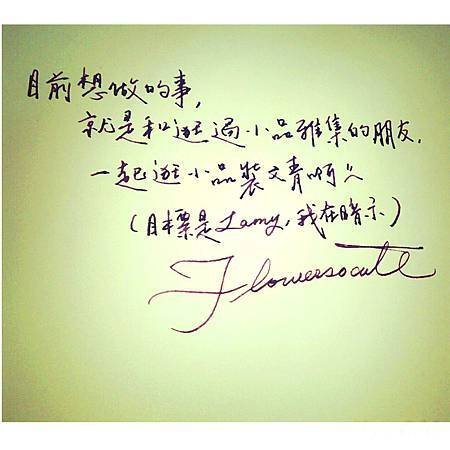 目前想做的事,
就是和逛過小品雅集的朋友,
一起逛小品裝文青啊^^
(目標是Lamy,我在暗示)
Flowersocute